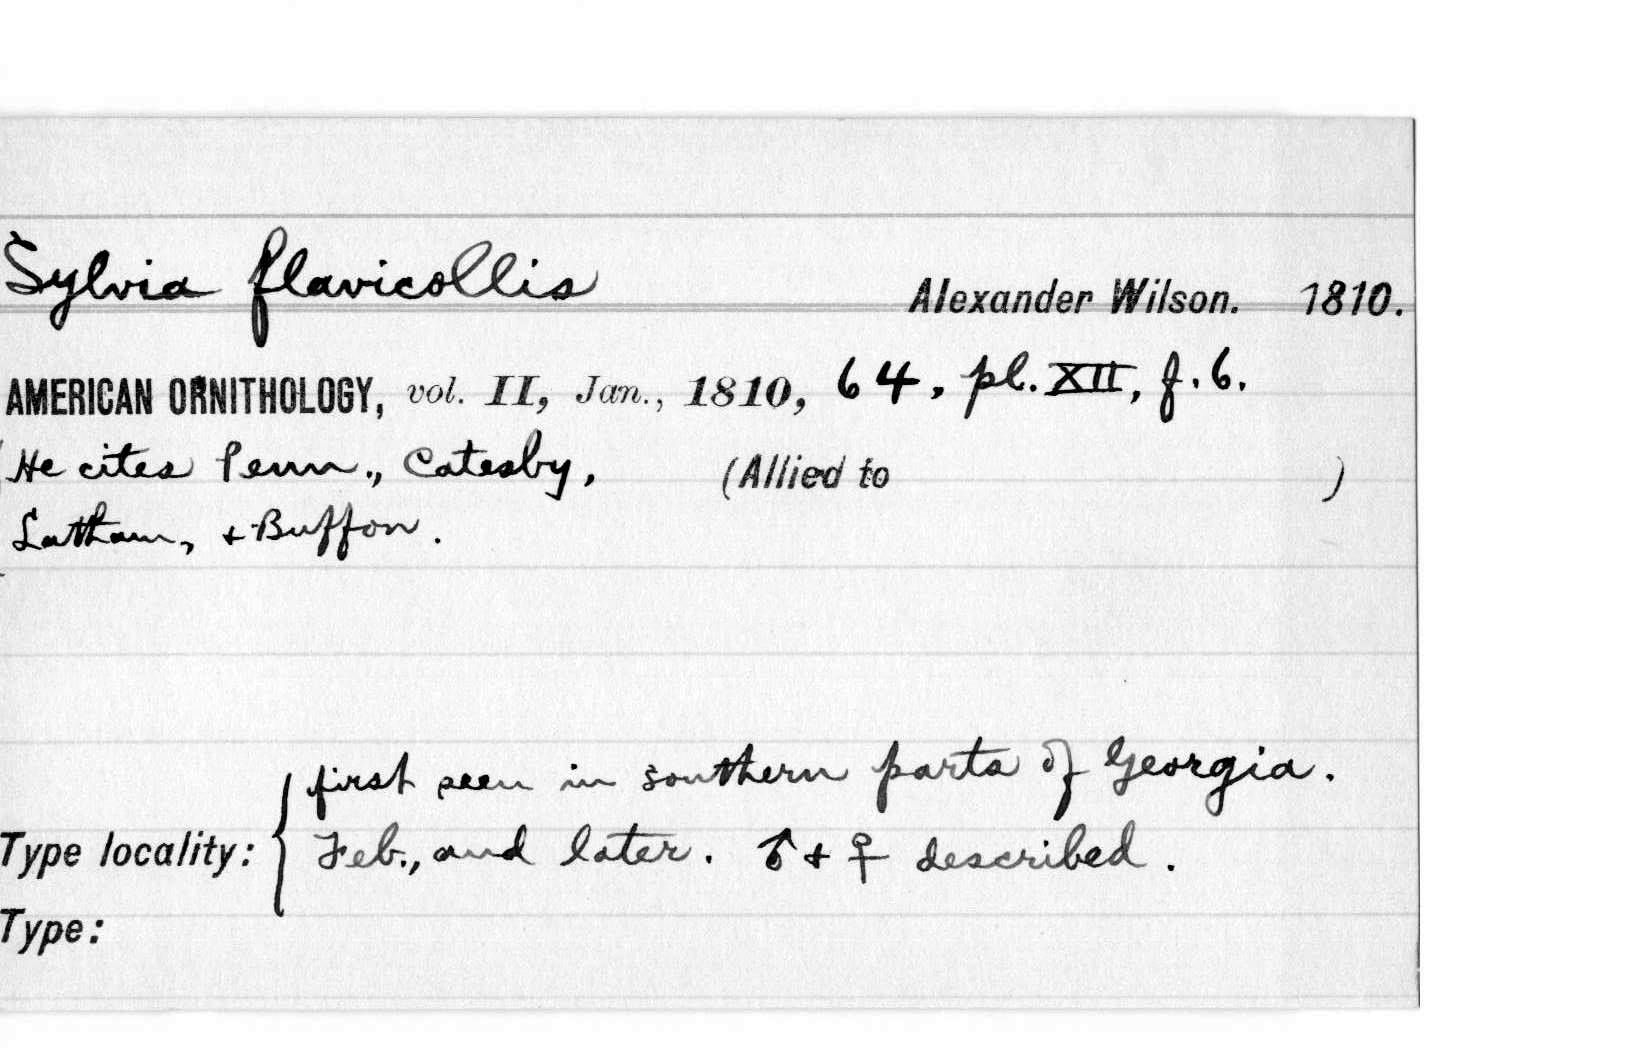 Sylvia flavicollis Alexander Wilson. 1810.
AMERICAN ORNITHOLOGY, vol. II, Jan., 1810, 64, pl. XII, f. 6.
He cites Penn., Catesby, (Allied to )
Latham, + Buffon.
first seen in southern parts of Georgia.
Type locality: { Feb., and later. ♂ + ♀ described.
Type: